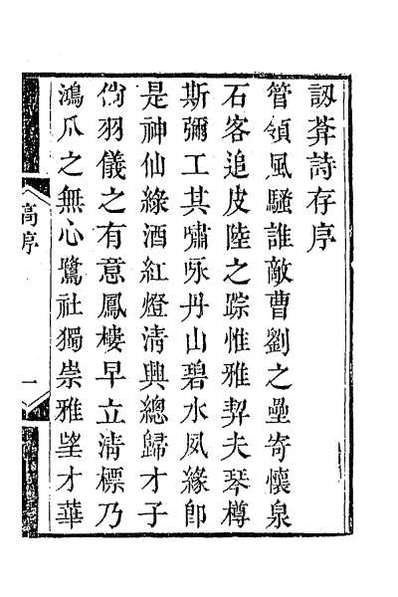 訒葊詩存序
管領風騷誰敵曹劉之壘寄懷泉
石客追皮陸之踪惟雅契夫琴樽
斯彌工其嘯咏丹山碧水夙緣卽
是神仙綠酒紅燈淸興總歸才子
尙羽儀之有意鳳樓早立淸標乃
鴻爪之無心鷺社獨崇雅望才華
高序
一